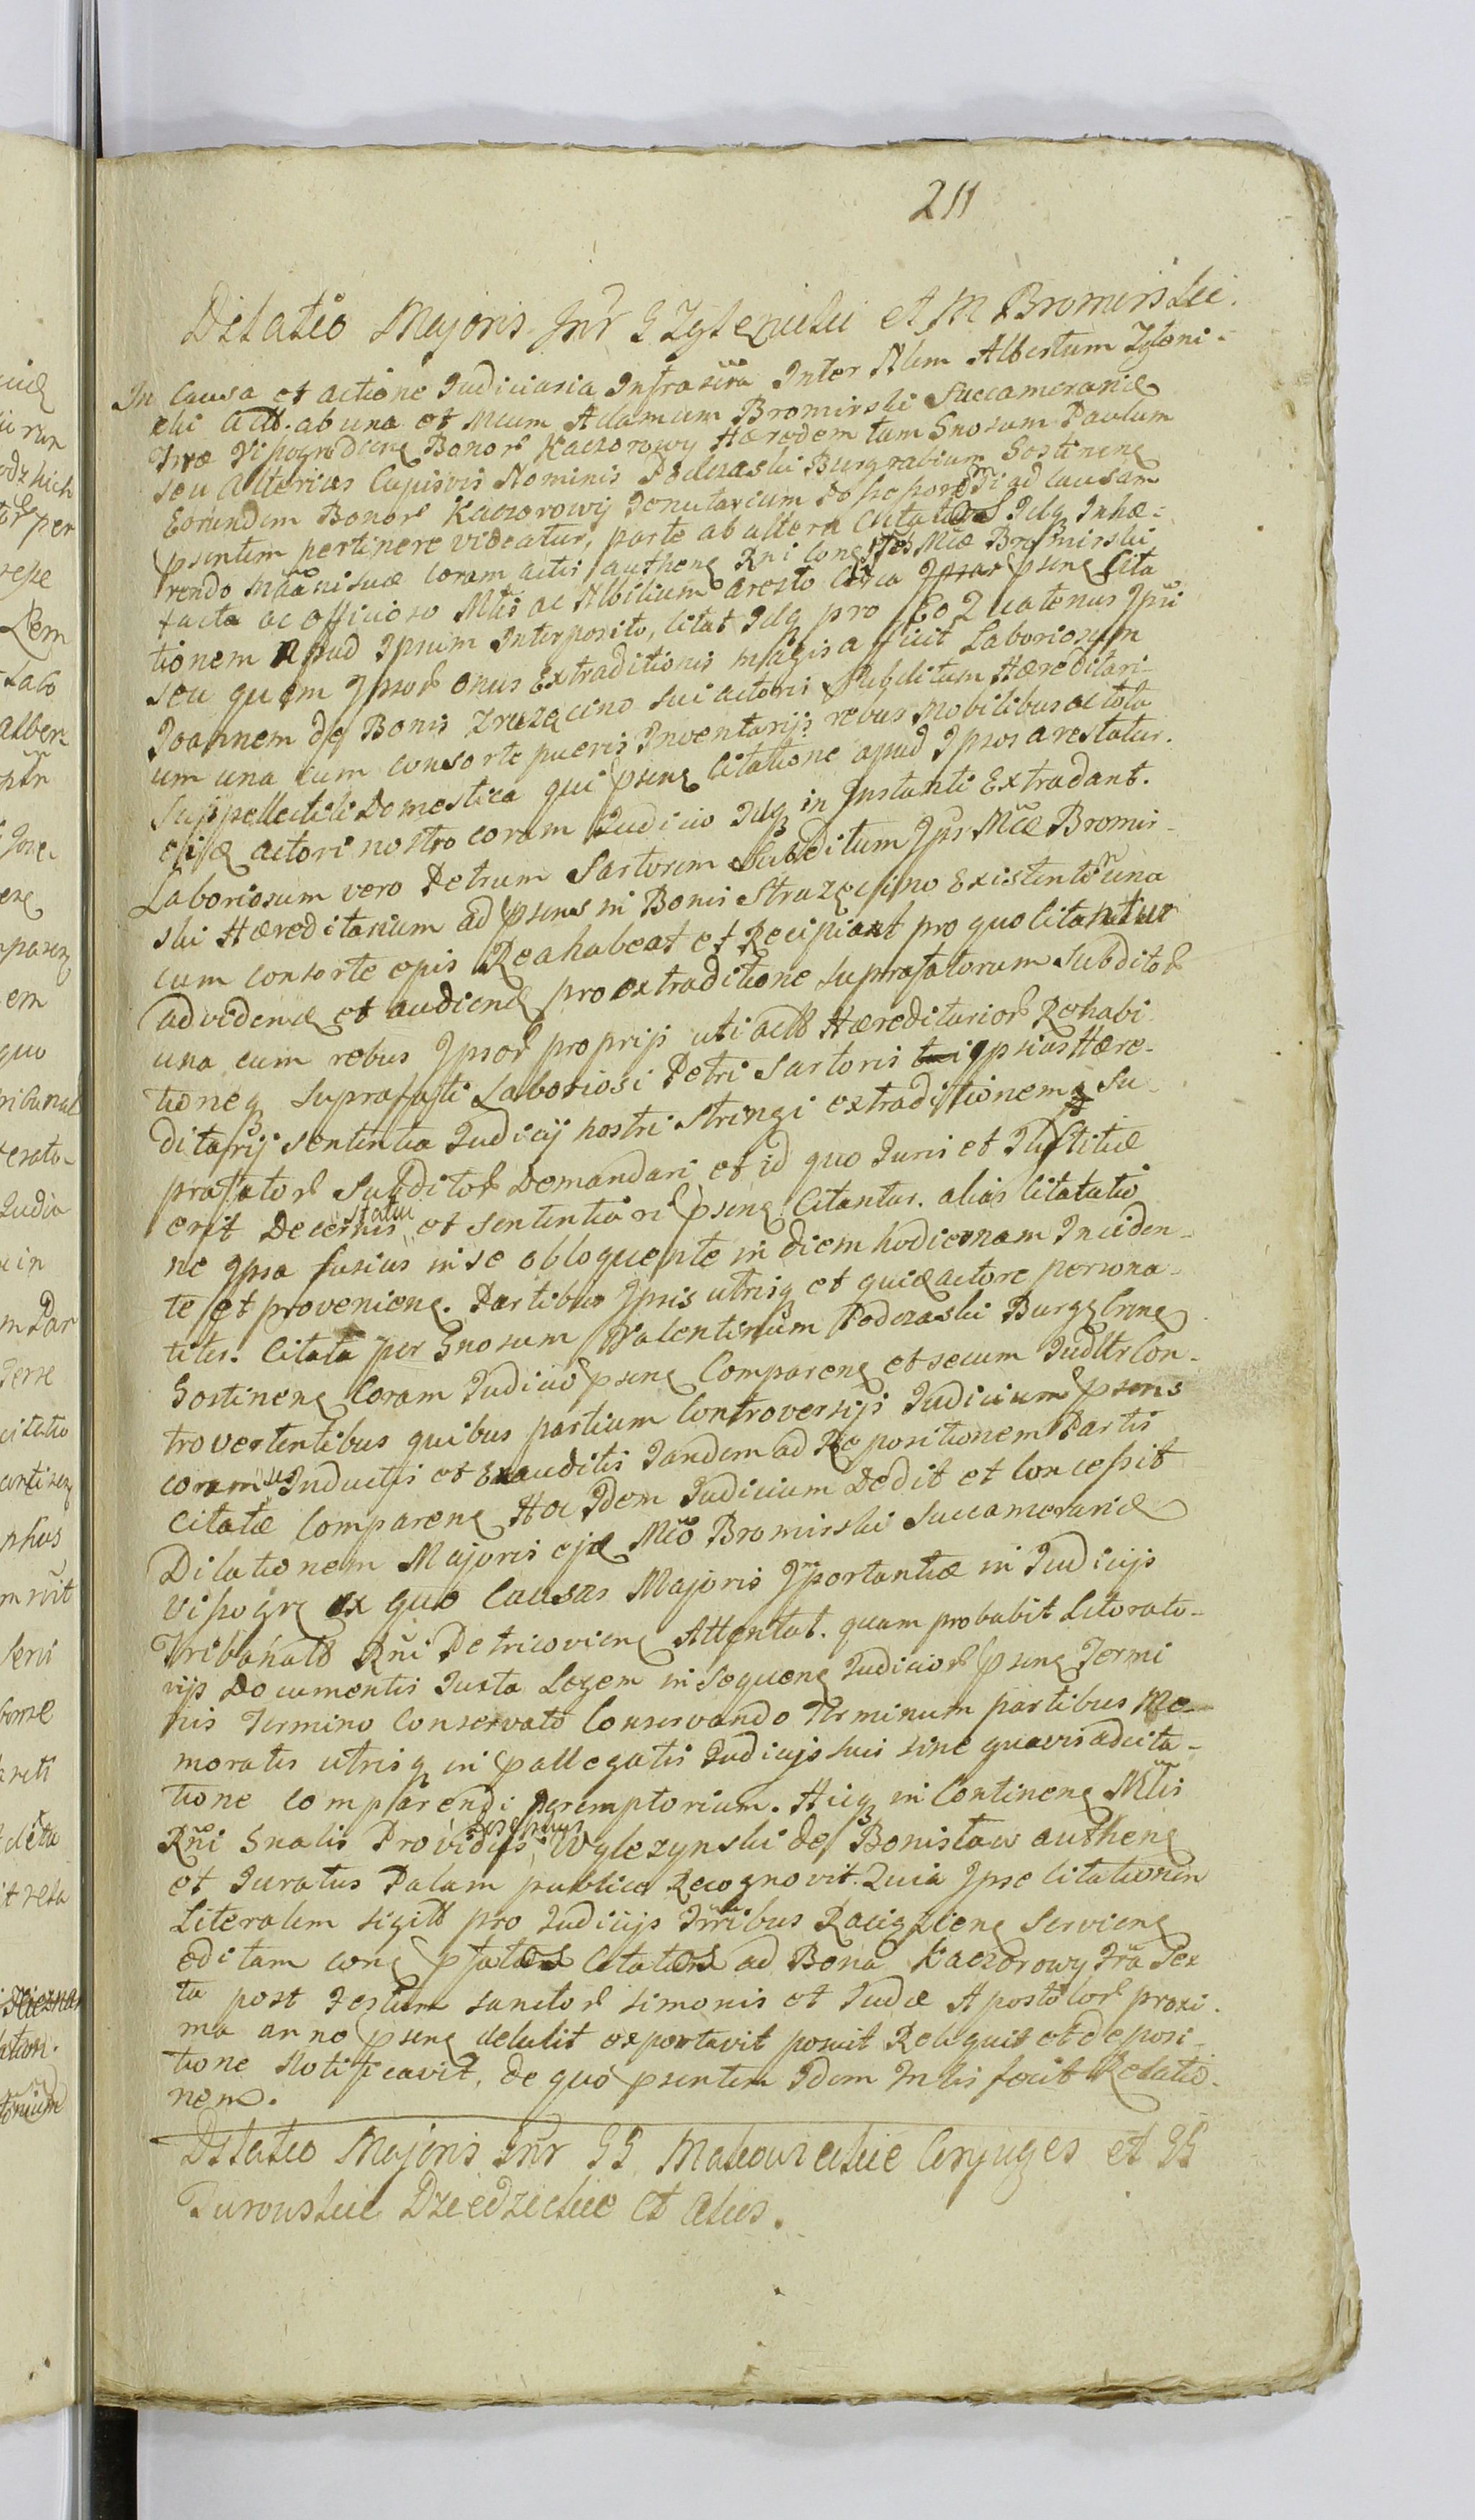 211
Dilatio Majoris Inr G Zglenicki et M Bromirskie.
In Causa et actione Judiciaria Infrascrā Inter Nlem Albertum Zgleni-
cki Actt. ab una et Mcum Adamum Bromirski Succamerariū
Trrae Viszogrodiens Bonor Kaczorowy Haeredem tum Gnosum Paulum
seu alterius Cujusvis Nominis Podczaski Burgrabium Gostinens
Eorundem Bonor Kaczorowy Tenutarium
psentem pertinere videatur, parte ab altera Citatos Idq Inhae-
rendo coram actis authens Rni Mcae Bromirski
facta ac officioso Mtis ac Nbilium aresto circa psens Cita
tionem apud Ipsum Interposito, Citat Idq pro Eo Quatenus Ipsi
seu quem Ipsor onus Extraditionis magis afficit Laboriosum
Joannem de Bonis Zruzęcino sui actoris subditum Haereditari-
um una cum consorte pueris Inventarijs rebus mobilibus ac tota
suppellectili Domestica qui psens Citatione apud Ipsos arestatur.
actori nostro coram Judicio Idq in Instanti Extradant.
Laboriosum vero Petrum Sartorem Subditum Ipsis Mcae Bromir-
ski Haereditarium ad psens in Bonis Struzęcino Existentem una
cum consorte ejus Reahabeat et Recipiant pro quo Citantur
ad videnđ et audienđ pro extraditione suprafatorum subditor
una cum rebus Ipsor proprijs uti actt Haereditarior Rehabi
tioneq suprafati Laboriosi Petri Sartoris ipsius Haere-
ditarij sententia Judicij nostri stringi extraditionemq Su-
prafator Subditor Demandari et id quo Juris et Justitiae
erit Decernis statui et sententiari psens Citantur. alias Citatio
ne Ipsa fusius in se obloquente in diem hodiernam Inciden-
te et proveniens. Partibus Ipsis utrisq et quidē actore persona-
liter. Citata per Gnosum Valentinum Podczaski Burggbrens
Gostinens Coram Judicio psens Comparens et secum Judlr Con-
trovertentibus quibus partium Controversijs Judicium psens
coram se Inductis et Exauditis Tandem ad Repositionem Partis
Citatae Comparens Hoc Idem Judicium Dedit et Concessit
Dilationem Majoris ejđ Mco Bromirski Succamerariđ
Viszogrs ex quo Causas Majoris Iportantiae in Judicijs
Tribunalt Rni Petricoviens Attentat. quam probabit Literato-
rijs Documentis Juxta Legem in Sequens Judicior psens Termi
nis Termino Conservato Conservando Terminum partibus Me-
moratis utrisq in pallegatis Judicijs suis sine quavis adcita-
tione comparendi peremptorium. Hicq in Continens Mtis
Rni Gnalis Providus Josephus Wglezynski de Bonisław authens
et Juratus Palam publice Recognovit. Quia Ipse Citationem
Literalem sigitt pro Judicijs Trribus Raciąziens Serviens
editam cons pfatos Citatos ad Bona Kaczorowy fra Sex
ta post Festum sanctor Simonis et Judae Apostolor proxi-
ma anno psens detulit exportavit posuit Reliquit et de posi-
tione Notificavit, de quo psentem Idem Inlis fecit Relatio-
nem.
Dilatio Majoris Inr GG Makowieckie Conjuges et GG
Turowskie Dziedzickie et Alios.